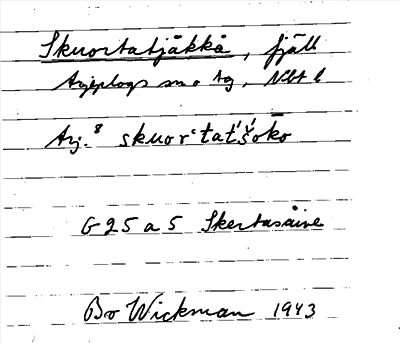 Skuortatjåkkå, fjäll
Arjeplogs sn o tg, Nbt l
Arj. 8 skuorˈtat́'šōko
G 25 a 5 Skertasaive
Bo Wickman 1943